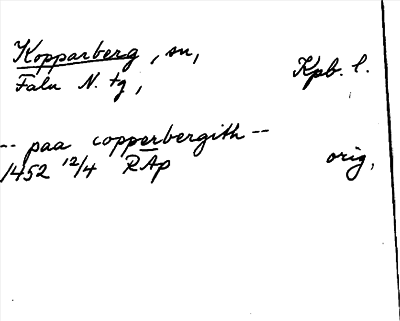 Kopparberg, sn,
Kpb. l.
Falu N. tg,
-- paa copperbergith --
1452 12/4 RAp orig,